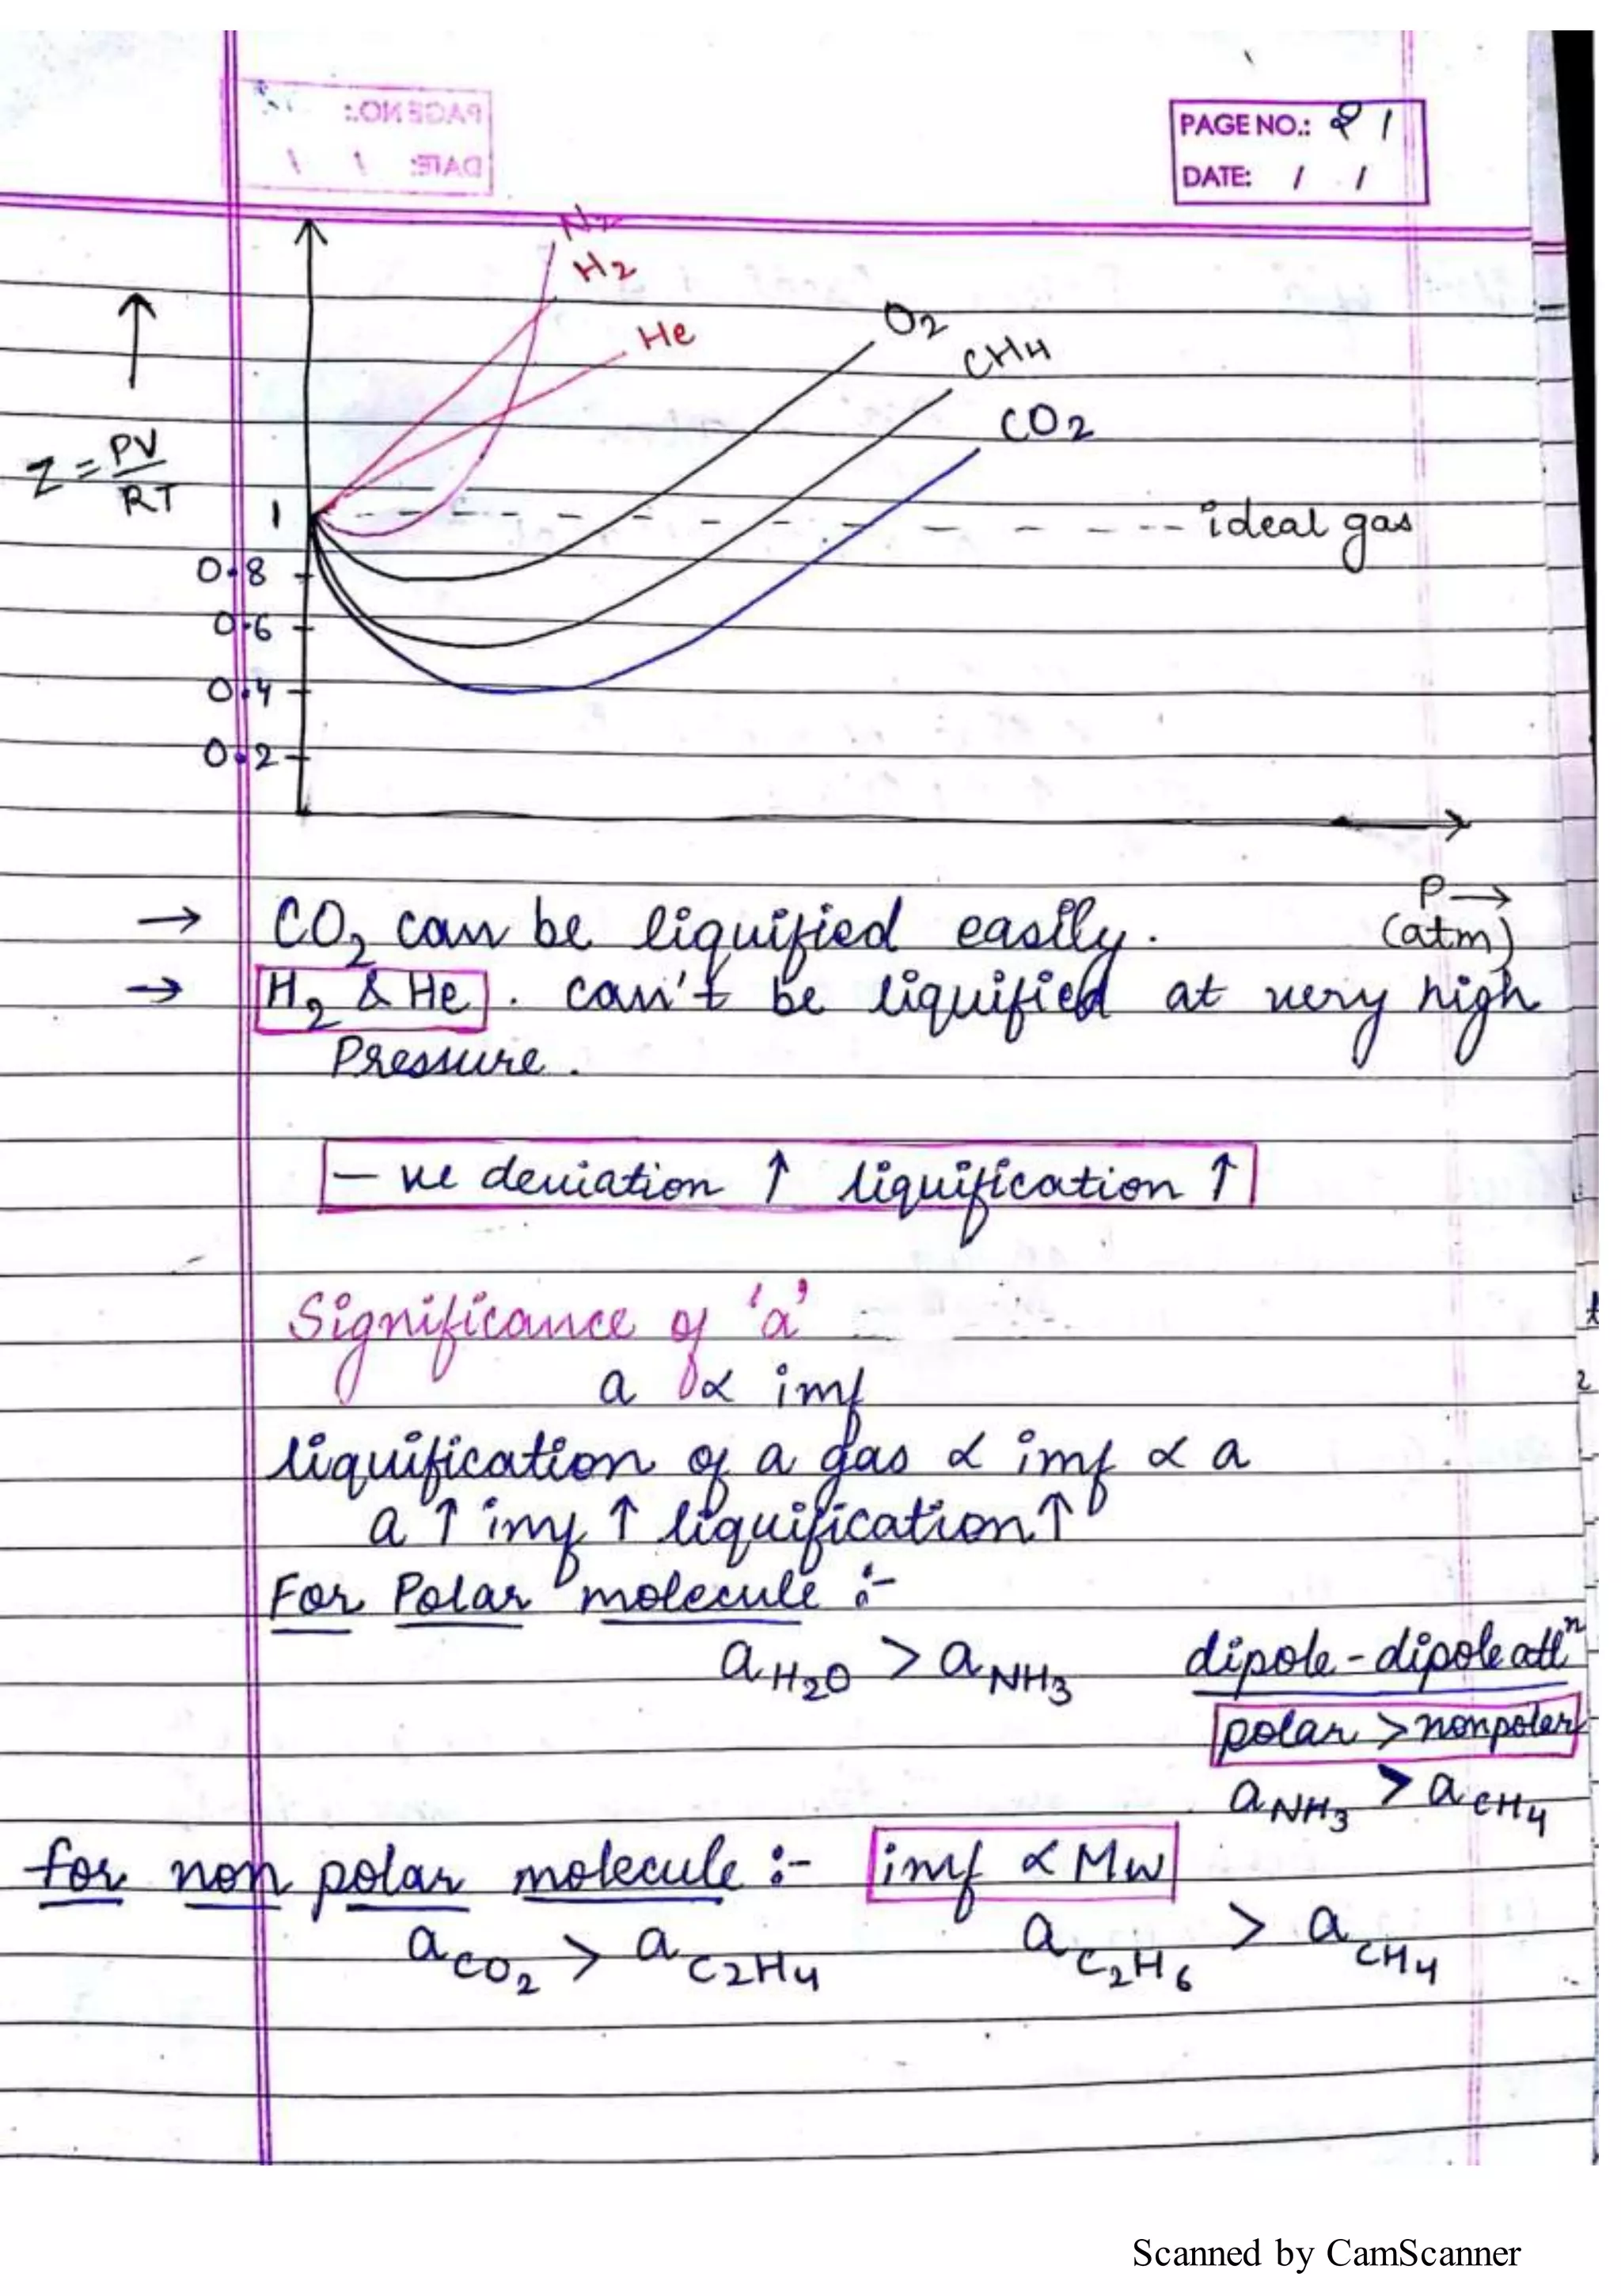 PAGE NO.:
DATE: / /
PAGE NO.: 21
DATE: / /
N2
H2
He
O2
CH4
CO2
Z = PV/RT
1
ideal gas
0.8
0.6
0.4
0.2
P →
(atm)
→ CO2 can be liquified easily.
→ H2 & He . can't be liquified at very high
Pressure.
- ve deviation ↑ liquification ↑
Significance of 'a'
a ∝ imf
liquification of a gas ∝ imf ∝ a
a ↑ imf ↑ liquification ↑
For Polar molecule :-
a H2O > a NH3 dipole-dipole attⁿ
polar > nonpolar
a NH3 > a CH4
for non polar molecule :- imf ∝ Mw
a CO2 > a C2H4 a C2H6 > a CH4
Scanned by CamScanner